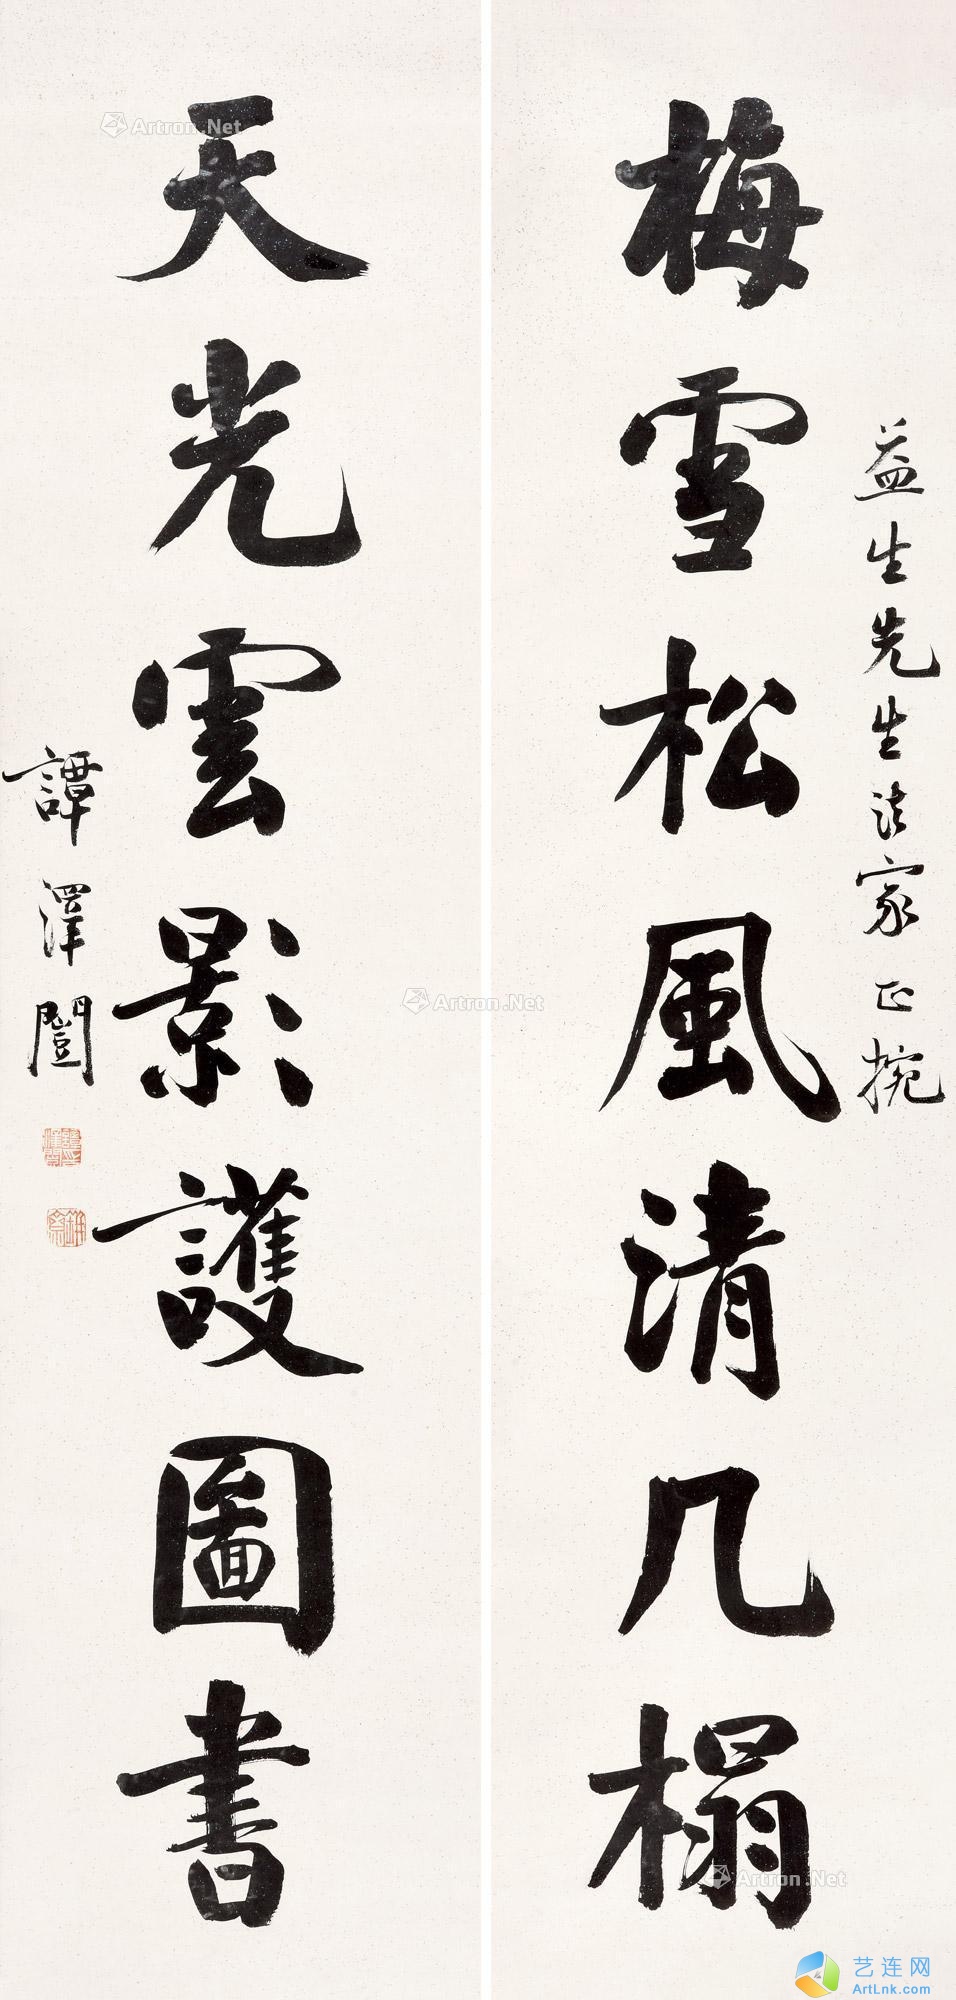 益生先生法家正捥
梅雪松風清几榻
天光雲影護圖書
譚澤闓
Artron.Net
Artron.Net
Artron.Net
艺连网
ArtLnk.com